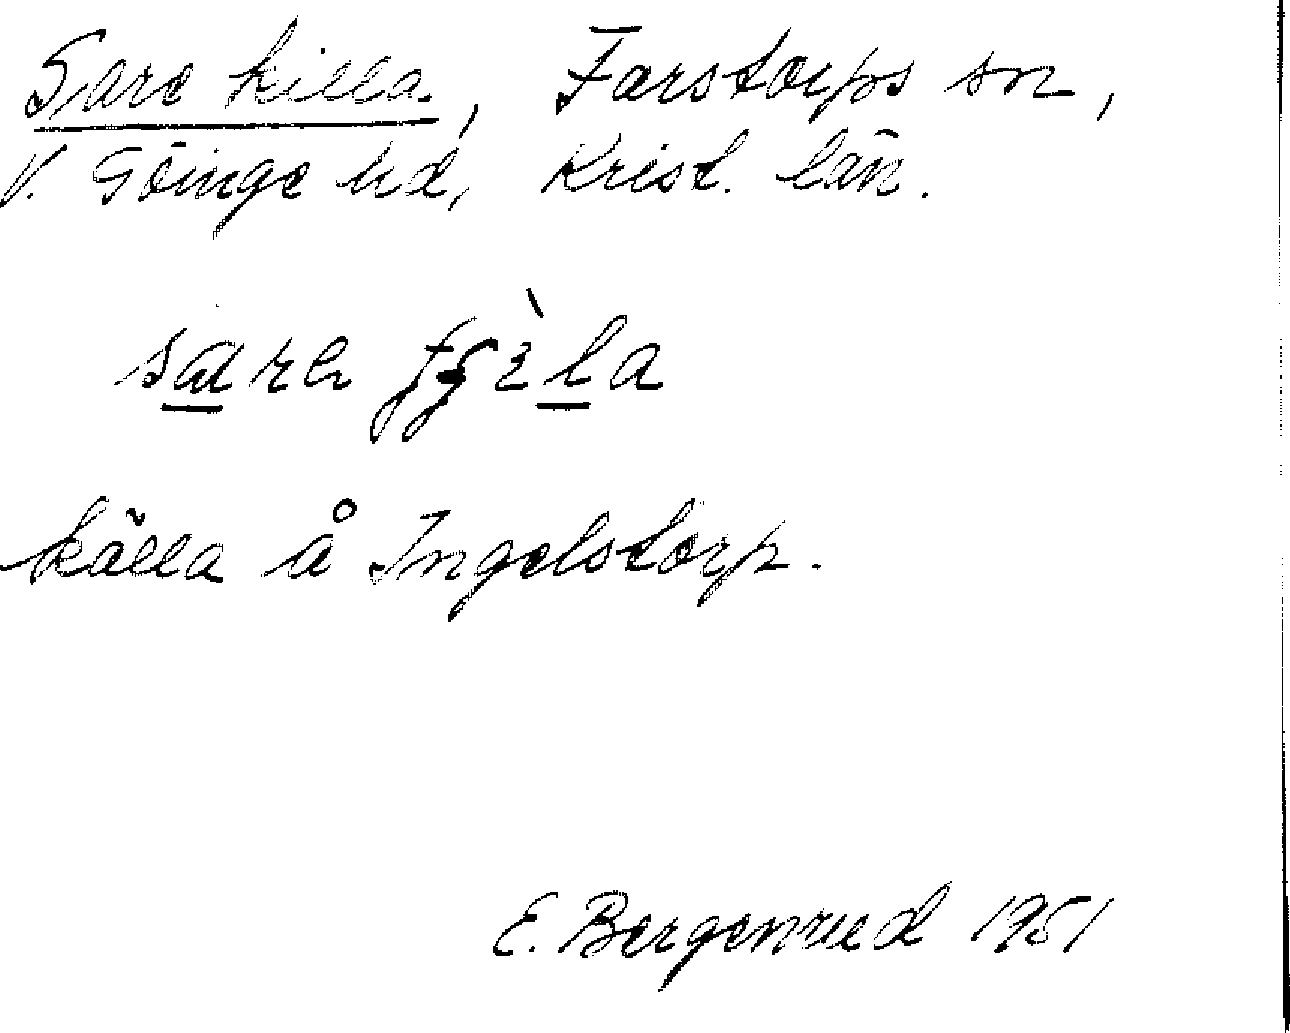 Sare killa, Farstorps sn,
V. Göinge hd, Krist. län.
källa å Ingelstorp.
E. Bergenrud 1951